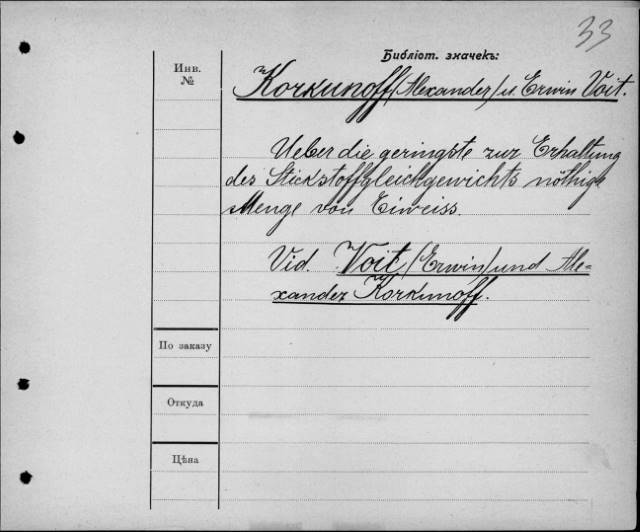 33
Библіот. значекъ:
Инв.
№
Korkunoff (Alexander) u. Erwin Voit.
Ueber die geringste zur Erhaltung
des Stickstoffgleichgewichts nöthige
Menge von Eiweiss.
Vid. Voit (Erwin) und Ale-
xander Korkunoff.
По заказу
Откуда
Цѣна